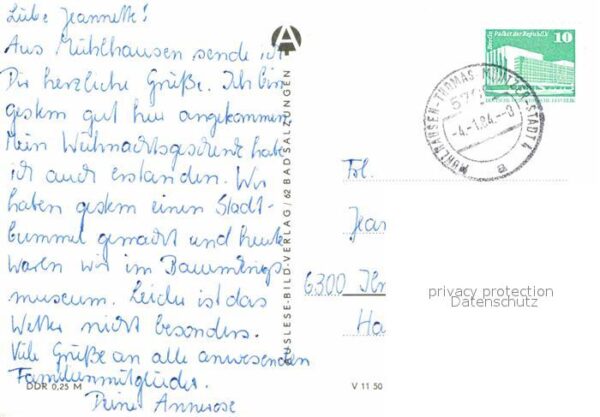 Liebe Jeannette!
Aus Mühlhausen sende ich
Dir herzliche Grüße. Ich bin
gestern gut hier angekommen.
Mein Weihnachtsgeschenk habe
ich auch erstanden. Wir
haben gestern einen Stadt-
bummel gemacht und heute
waren wir im
museum. Leider ist das
Wetter nicht besonders.
Viele Grüße an alle anwesenden
Familienmitglieder.
Deine Annerose
DDR 0,25 M
AUSLESE-BILD-VERLAG / 62 BAD SALZUNGEN
V 11 50
Berlin Palast der Republik 10
MÜHLHAUSEN-THOMAS-MÜNTZER-STADT 4
-4.-1.84.-8
a
Frl.
Jean
6300 Ilm
Ha
privacy protection
Datenschutz